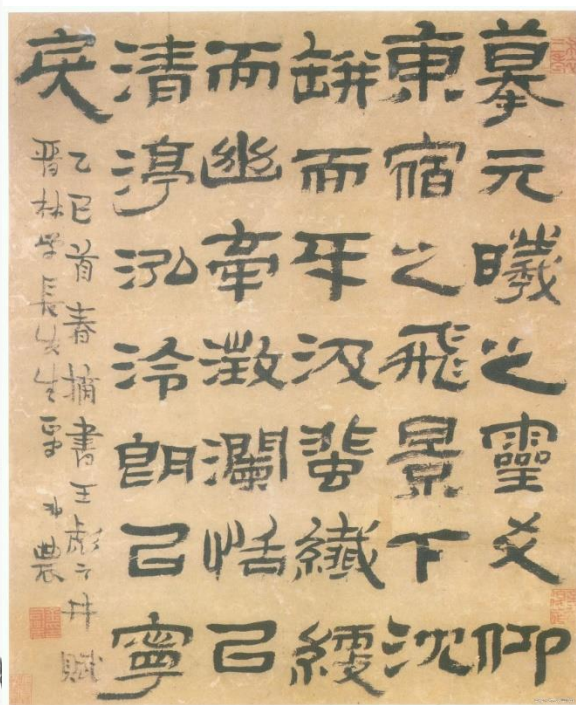 摹元曦之靈爻仰
東宿之飛景下沈
缾而牙汲蜚纖綆
而幽牽澂瀾恬已
清渟泓泠朗已寧
矣
乙巳首春摘書王彪之井賦
晋林學長先生正 農